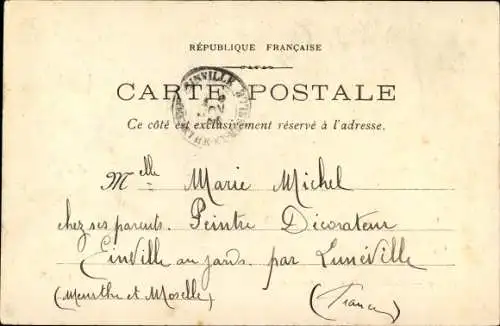 RÉPUBLIQUE FRANÇAISE
CARTE POSTALE
EINVILLE
Ce côté est exclusivement réservé à l'adresse.
Melle Marie Michel
chez ses parents. Peintre Décorateur
Einville au jards par Lunéville
(Meurthe et Moselle) (France)